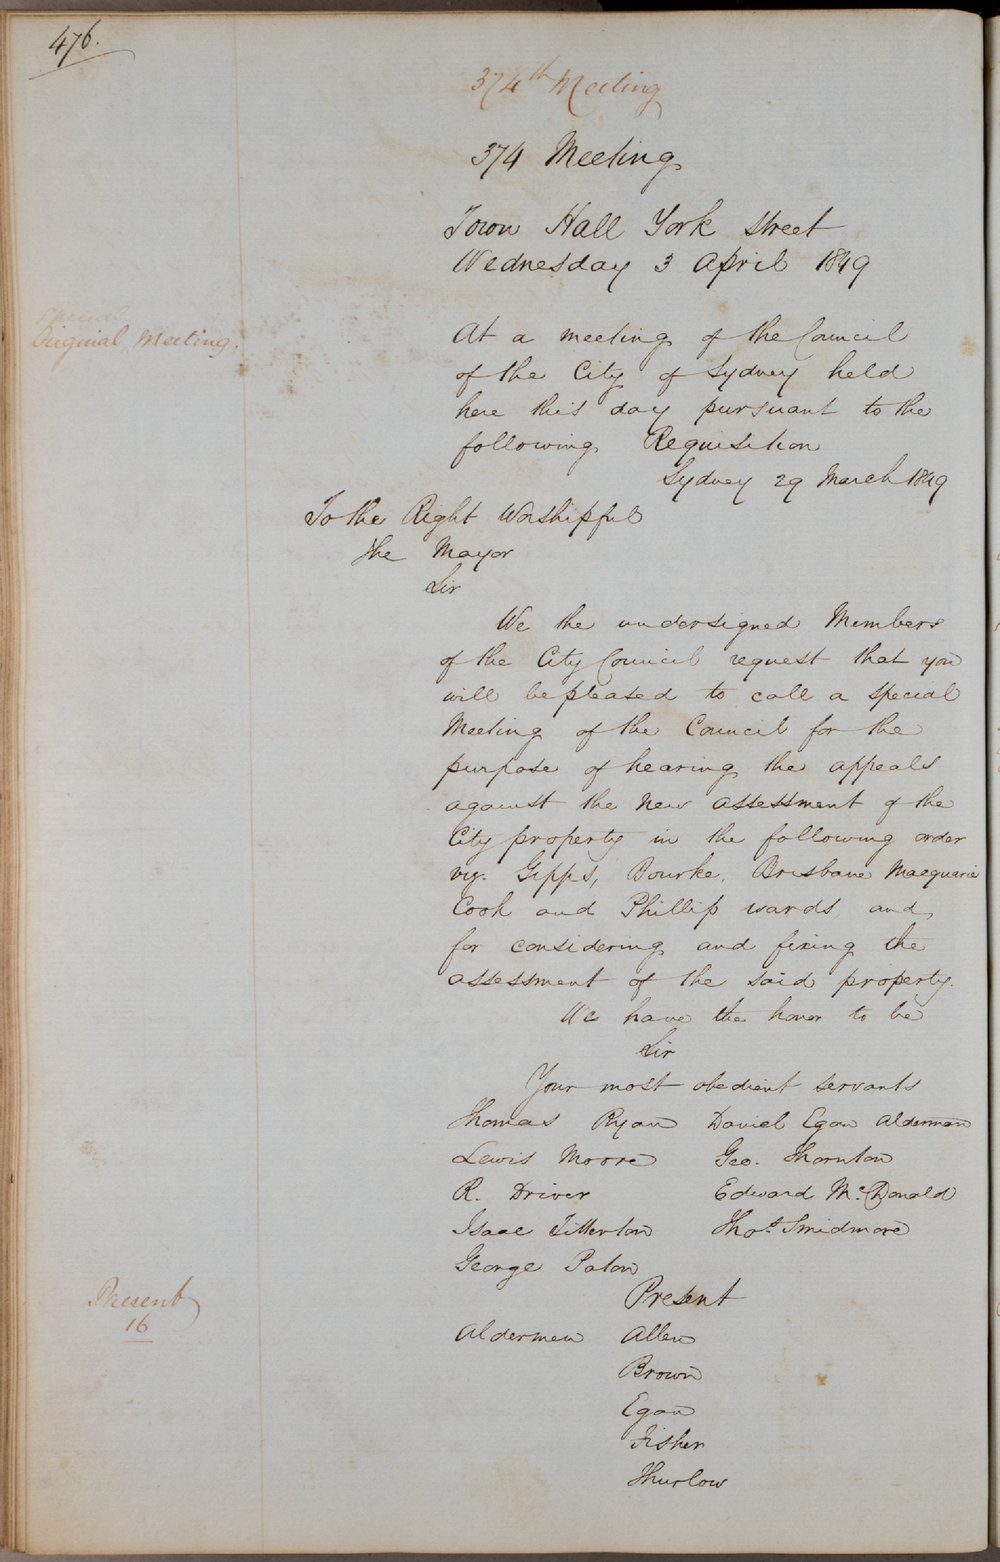 476.
374th Meeting
374 Meeting
Town Hall York street
Wednesday 3 April 1849
Special
Original Meeting.
At a meeting of the Council
of the City of Sydney held
here this day pursuant to the
following Requisition
Sydney 29 March 1849
To the Right Worshipful
the Mayor
Sir
We the undersigned Members
of the City Council request that you
will be pleased to call a special
Meeting of the Council for the
purpose of hearing the appeals
against the New assessment of the
City property in the following order
viz. Gipps, Bourke, Brisbane Macquarie
Cook and Phillip wards and
for considering and fixing the
assessment of the said property.
We have the honor to be
Sir
Your most obedient servants
Thomas Ryan Daniel Egan Alderman
Lewis Moore Geo. Thornton
R. Driver Edward McDonald
Isaac Titterton Thos. Smidmore
George Paton
Present
16
Present
Aldermen Allen
Brown
Egan
Fisher
Thurlow